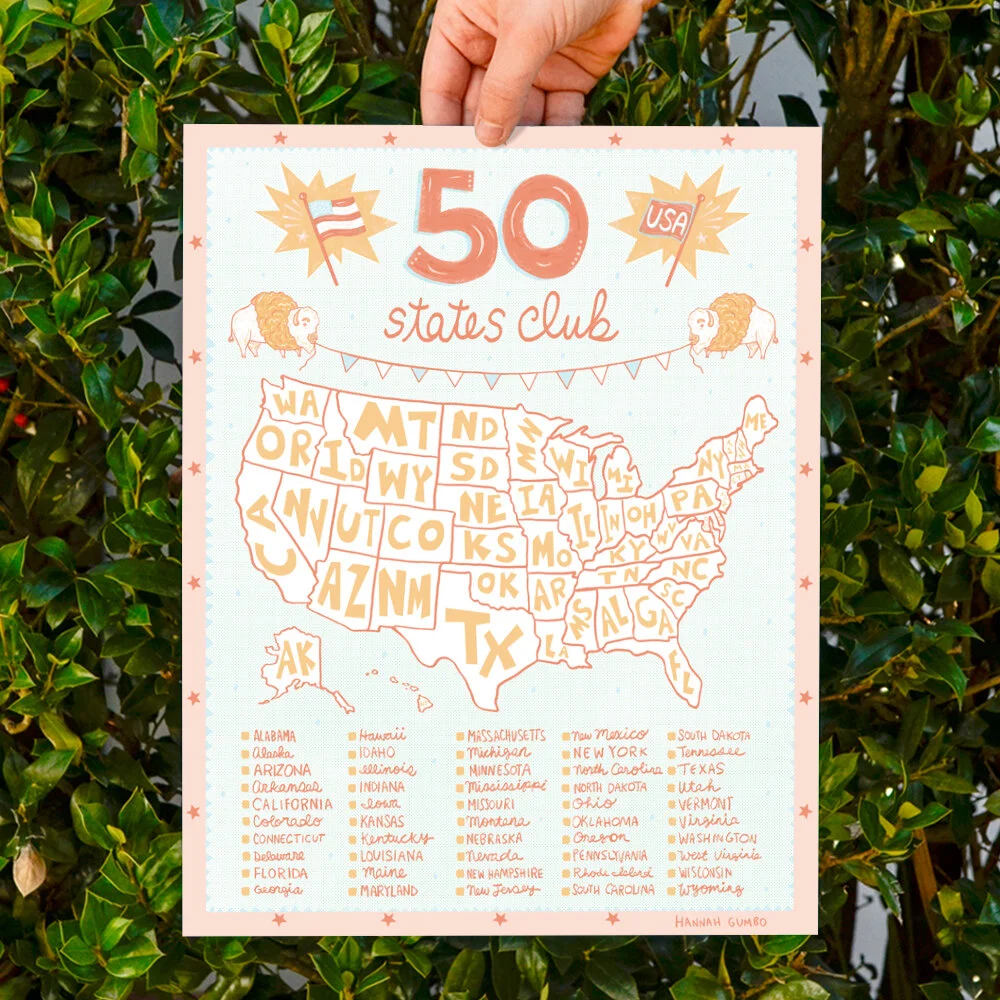 50
USA
states club
WA
MT
ND
MN
ME
OR
ID
SD
WI
MI
NY
WY
CA
NV
UT
CO
NE
IA
IL
IN
OH
PA
KS
MO
KY
WV
VA
AZ
NM
OK
AR
TN
NC
SC
TX
LA
MS
AL
GA
FL
AK
ALABAMA
Alaska
ARIZONA
Arkansas
CALIFORNIA
Colorado
CONNECTICUT
Delaware
FLORIDA
Georgia
Hawaii
IDAHO
Illinois
INDIANA
Iowa
KANSAS
Kentucky
LOUISIANA
Maine
MARYLAND
MASSACHUSETTS
Michigan
MINNESOTA
Mississippi
MISSOURI
Montana
NEBRASKA
Nevada
NEW HAMPSHIRE
New Jersey
New Mexico
NEW YORK
North Carolina
NORTH DAKOTA
Ohio
OKLAHOMA
Oregon
PENNSYLVANIA
Rhode Island
SOUTH CAROLINA
SOUTH DAKOTA
Tennessee
TEXAS
Utah
VERMONT
Virginia
WASHINGTON
West Virginia
WISCONSIN
Wyoming
HANNAH GUMBO